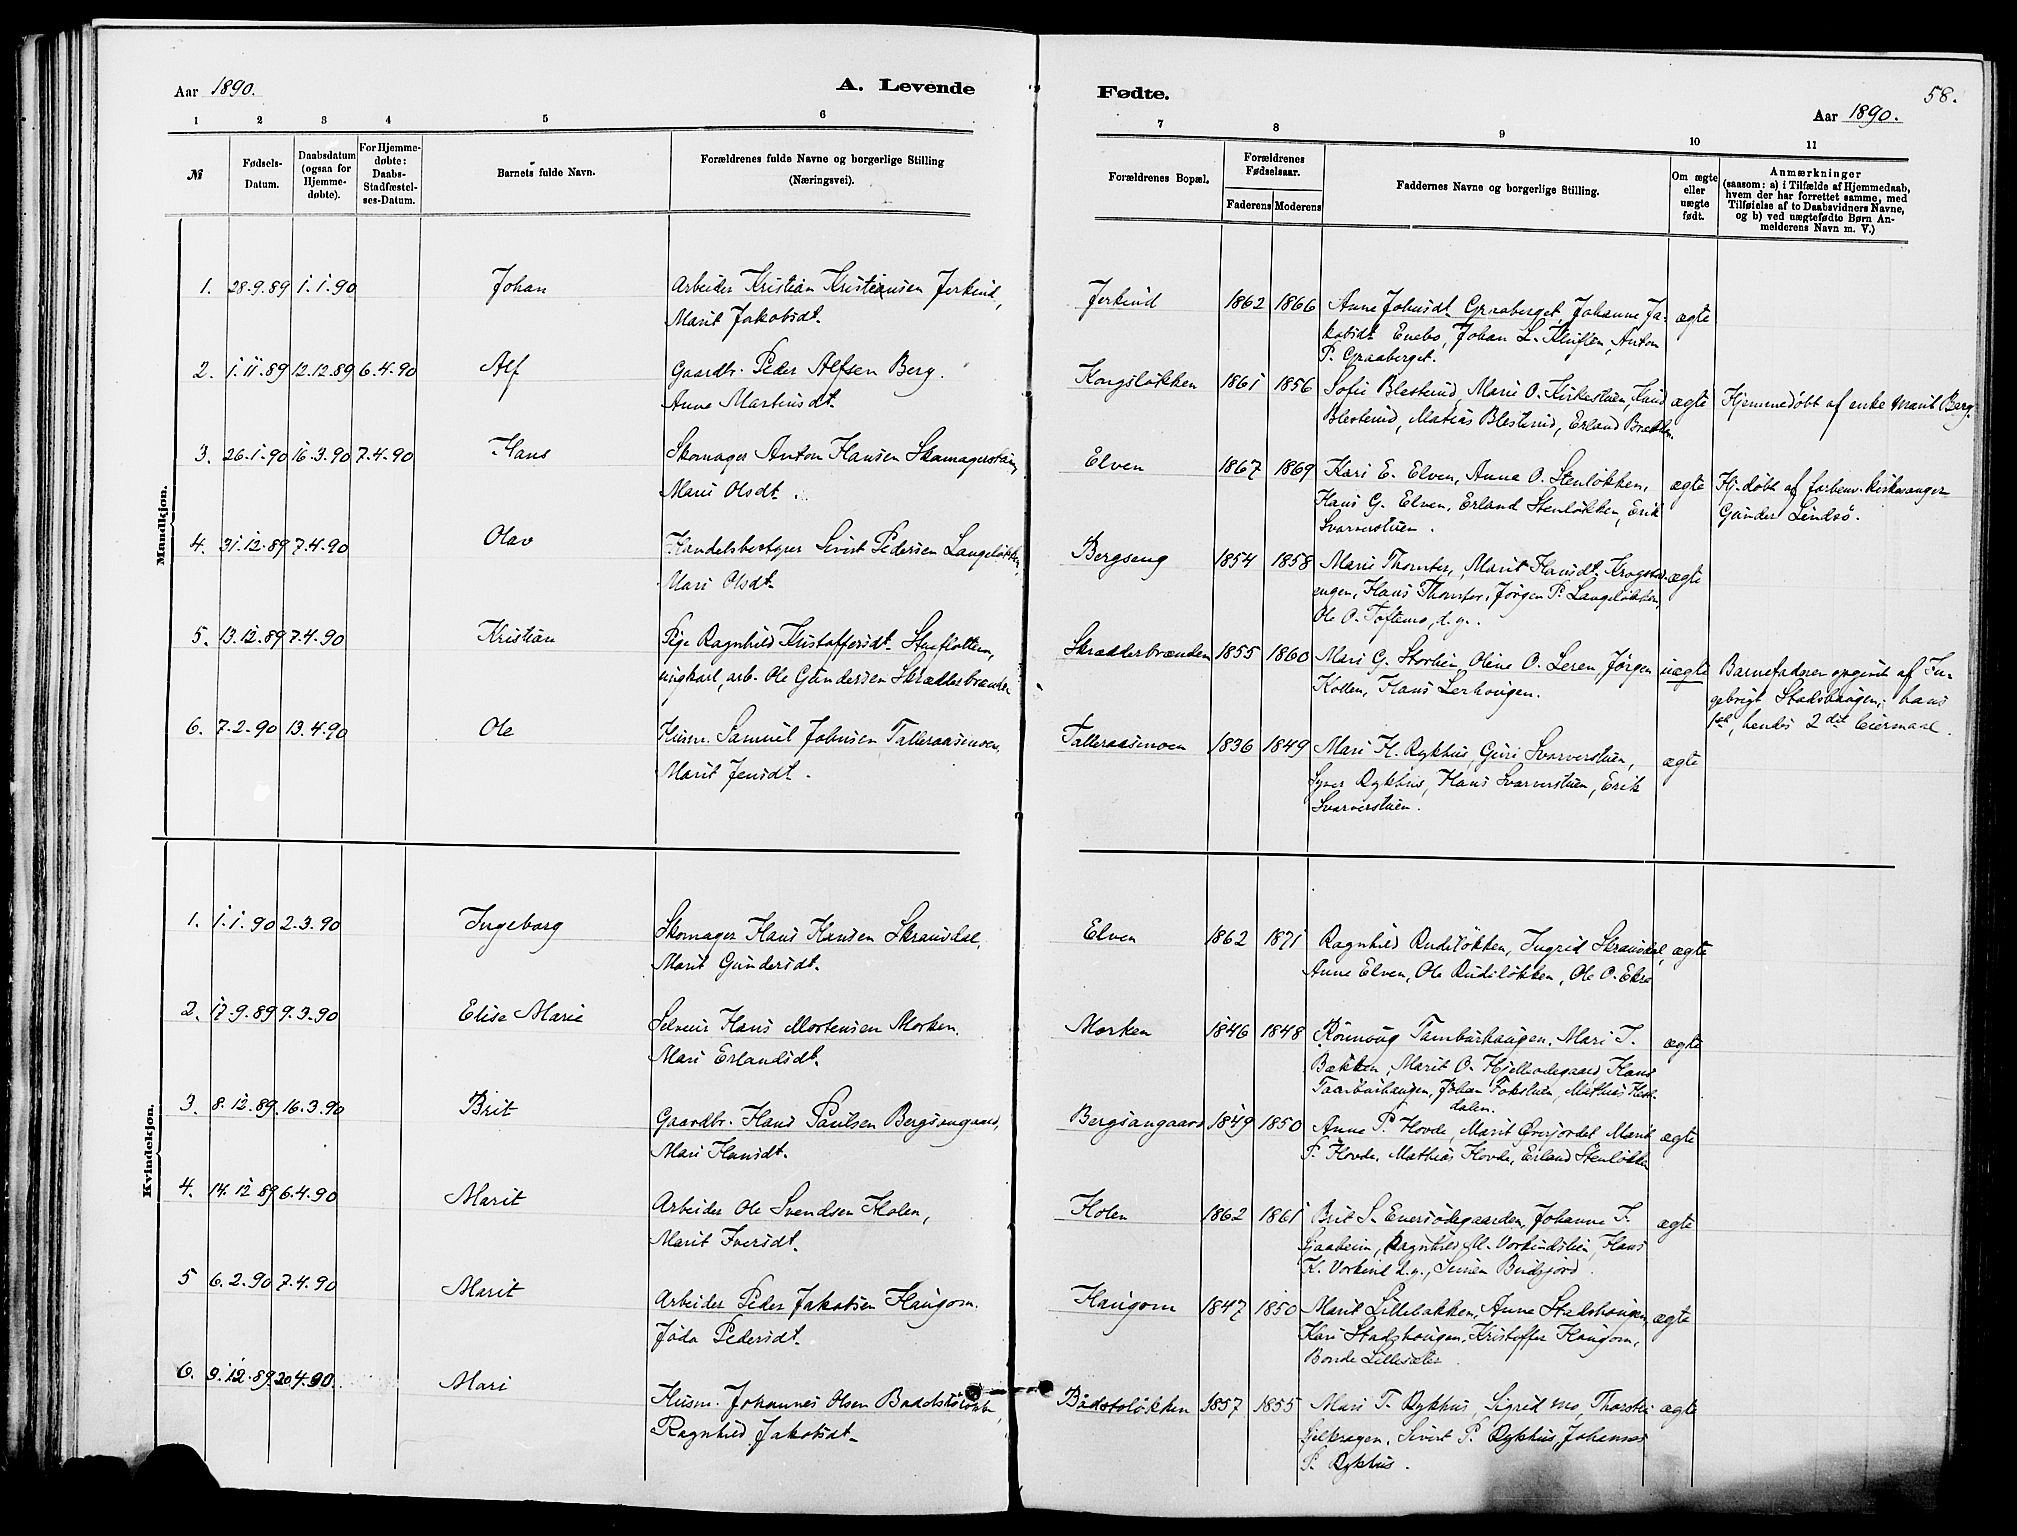 Aar 1890.
A. Levende
1 2 3 4 5 6
№
Fødsels-
Datum.
Daabsdatum
(ogsaa for
Hjemme-
døbte).
For Hjemme-
døbte:
Daabs-
Stadfæstel-
ses-Datum.
Barnets fulde Navn.
Forældrenes fulde Navne og borgerlige Stilling
(Næringsvei).
Mandkjøn.
1. 28.9.89 1.1.90 Johan Arbeider Kristian Kristiansen Jerkind,
Marit Jakobsdt.
2. 1.11.89 12.12.89 6.4.90 Alf Gaardbr. Peder Alfsen Berg.
Anne Martinusdt.
3. 26.1.90 16.3.90 7.4.90 Hans Skomager Anton Hansen
Mari Olsdt.
4. 31.12.89 7.4.90 Olav Handelsbestyrer Sivert Pedersen Langeløkken,
Mari Olsdt.
5. 13.12.89 7.4.90 Kristian Pige Ragnhild Kristoffersdt.
ungkarl, arb. Ole Gundersen Skrædderbrænden
6. 7.2.90 13.4.90 Ole Husm. Samuel Johnsen Talleraasmoen,
Marit Jensdt.
Kvindekjøn.
1. 1.1.90 2.3.90 Ingeborg Skomager Hans Hansen Skramsdal,
Marit Gundersdt.
2. 17.9.89 9.3.90 Elise Marie Selveier Hans Mortensen Morken.
Mari Erlandsdt.
3. 8.12.89. 16.3.90 Brit Gaardbr. Hans Paulsen Bergsangaard,
Mari Hansdt.
4. 14.12.89 6.4.90 Marit Arbeider Ole Svendsen Holen,
Marit Iversdt.
5 6.2.90 7.4.90 Marit Arbeider Peder Jakobsen Haugom.
Jøda Pedersdt.
6. 9.12.89. 20.4.90. Mari Husm. Johannes Olsen
Ragnhild Jakobsdt.
58.
Fødte.
Aar 1890.
7 8 9 10 11
Forældrenes Bopæl.
Forældrenes
Fødselsaar.
Faderens Moderens
Faddernes Navne og borgerlige Stilling.
Om ægte
eller
uægte
født.
Anmærkninger
(saasom: a) i Tilfælde af Hjemmedaab,
hvem der har forrettet samme, med
Tilføielse af to Daabsvidners Navne,
og b) ved uægtefødte Børn An-
melderens Navn m. V.)
Jerkind 1862 1866 Anne Johnsdt. Graaberget, Johanne Ja- ægte
kobsdt. Enebo, Johan L. Kluften, Anton
P. Graaberget.
Kongsløkken 1861 1856 Sofie Blesterud, Mari O. Kirkestuen, ægte Hjemmedøbt af enke Marit Berg.
Blesterud, Matias Blesterud, Erland Brækken.
Elven 1867 1869 Kari E. Elven, Anne O. Stenløkken, ægte Hj.døbt af forhenv. kirkesanger
Hans G. Elven, Erland Stenløkken, Erik Gunder Lindsø.
Svarverstuen.
Bergseng 1854 1858 Mari Thomter, Marit Hansdt. ægte
engen, Hans Thomter, Jørgen P. Langeløkken,
Ole O. Toftemo, d.y.
Skrædderbrænden 1855 1860 Mari G. Storlien, Oline O. Leren, Jørgen uægte Barnefaderen opgivet af In-
Kollen, Hans Lerhougen. gebrigt Stadshaugen; hans
1ste, hendes 2det leiermaal.
Talleraasmoen 1836 1849 Mari H. Rykhus, Guri Svarverstuen, ægte
Syver Rykhus, Hans Svarverstuen, Erik
Svarverstuen.
Elven 1862 1871 Ragnhild Rudiløkken, Ingrid Skramsdal, ægte
Anne Elven, Ole Rudiløkken, Ole O. Ekre
Morken 1846 1848 Rønnoug Tamburhaugen, Mari I. ægte
Bækken, Marit O. Hjelleødegaard, Hans
Tamburhaugen, Johan Fokstuen, Mathias
dalen.
Bergsangaard 1849 1850 Anne P. Hovde, Marit Øverjordet, Marit ægte
P. Hovde, Mathias Hovde, Erland Stenløkken
Holen 1862 1861 Brit S. Enersødegaarden, Johanne I. ægte
Gaaheim, Ragnhild M. Vorkindslien, Hans
K. Vorkind d.y., Simen Budsjord.
Haugom 1847 1850 Marit Lillebakken, Anne Stadshaugen, ægte
Kari Stadshougen, Kristoffer Haugom,
Bonde Lillesæter.
Badstoløkken 1857 1855 Mari T. Rykhus, Sigrid Mo, Thorstein ægte
Sivert P. Rykhus, Johannes
P. Rykhus.